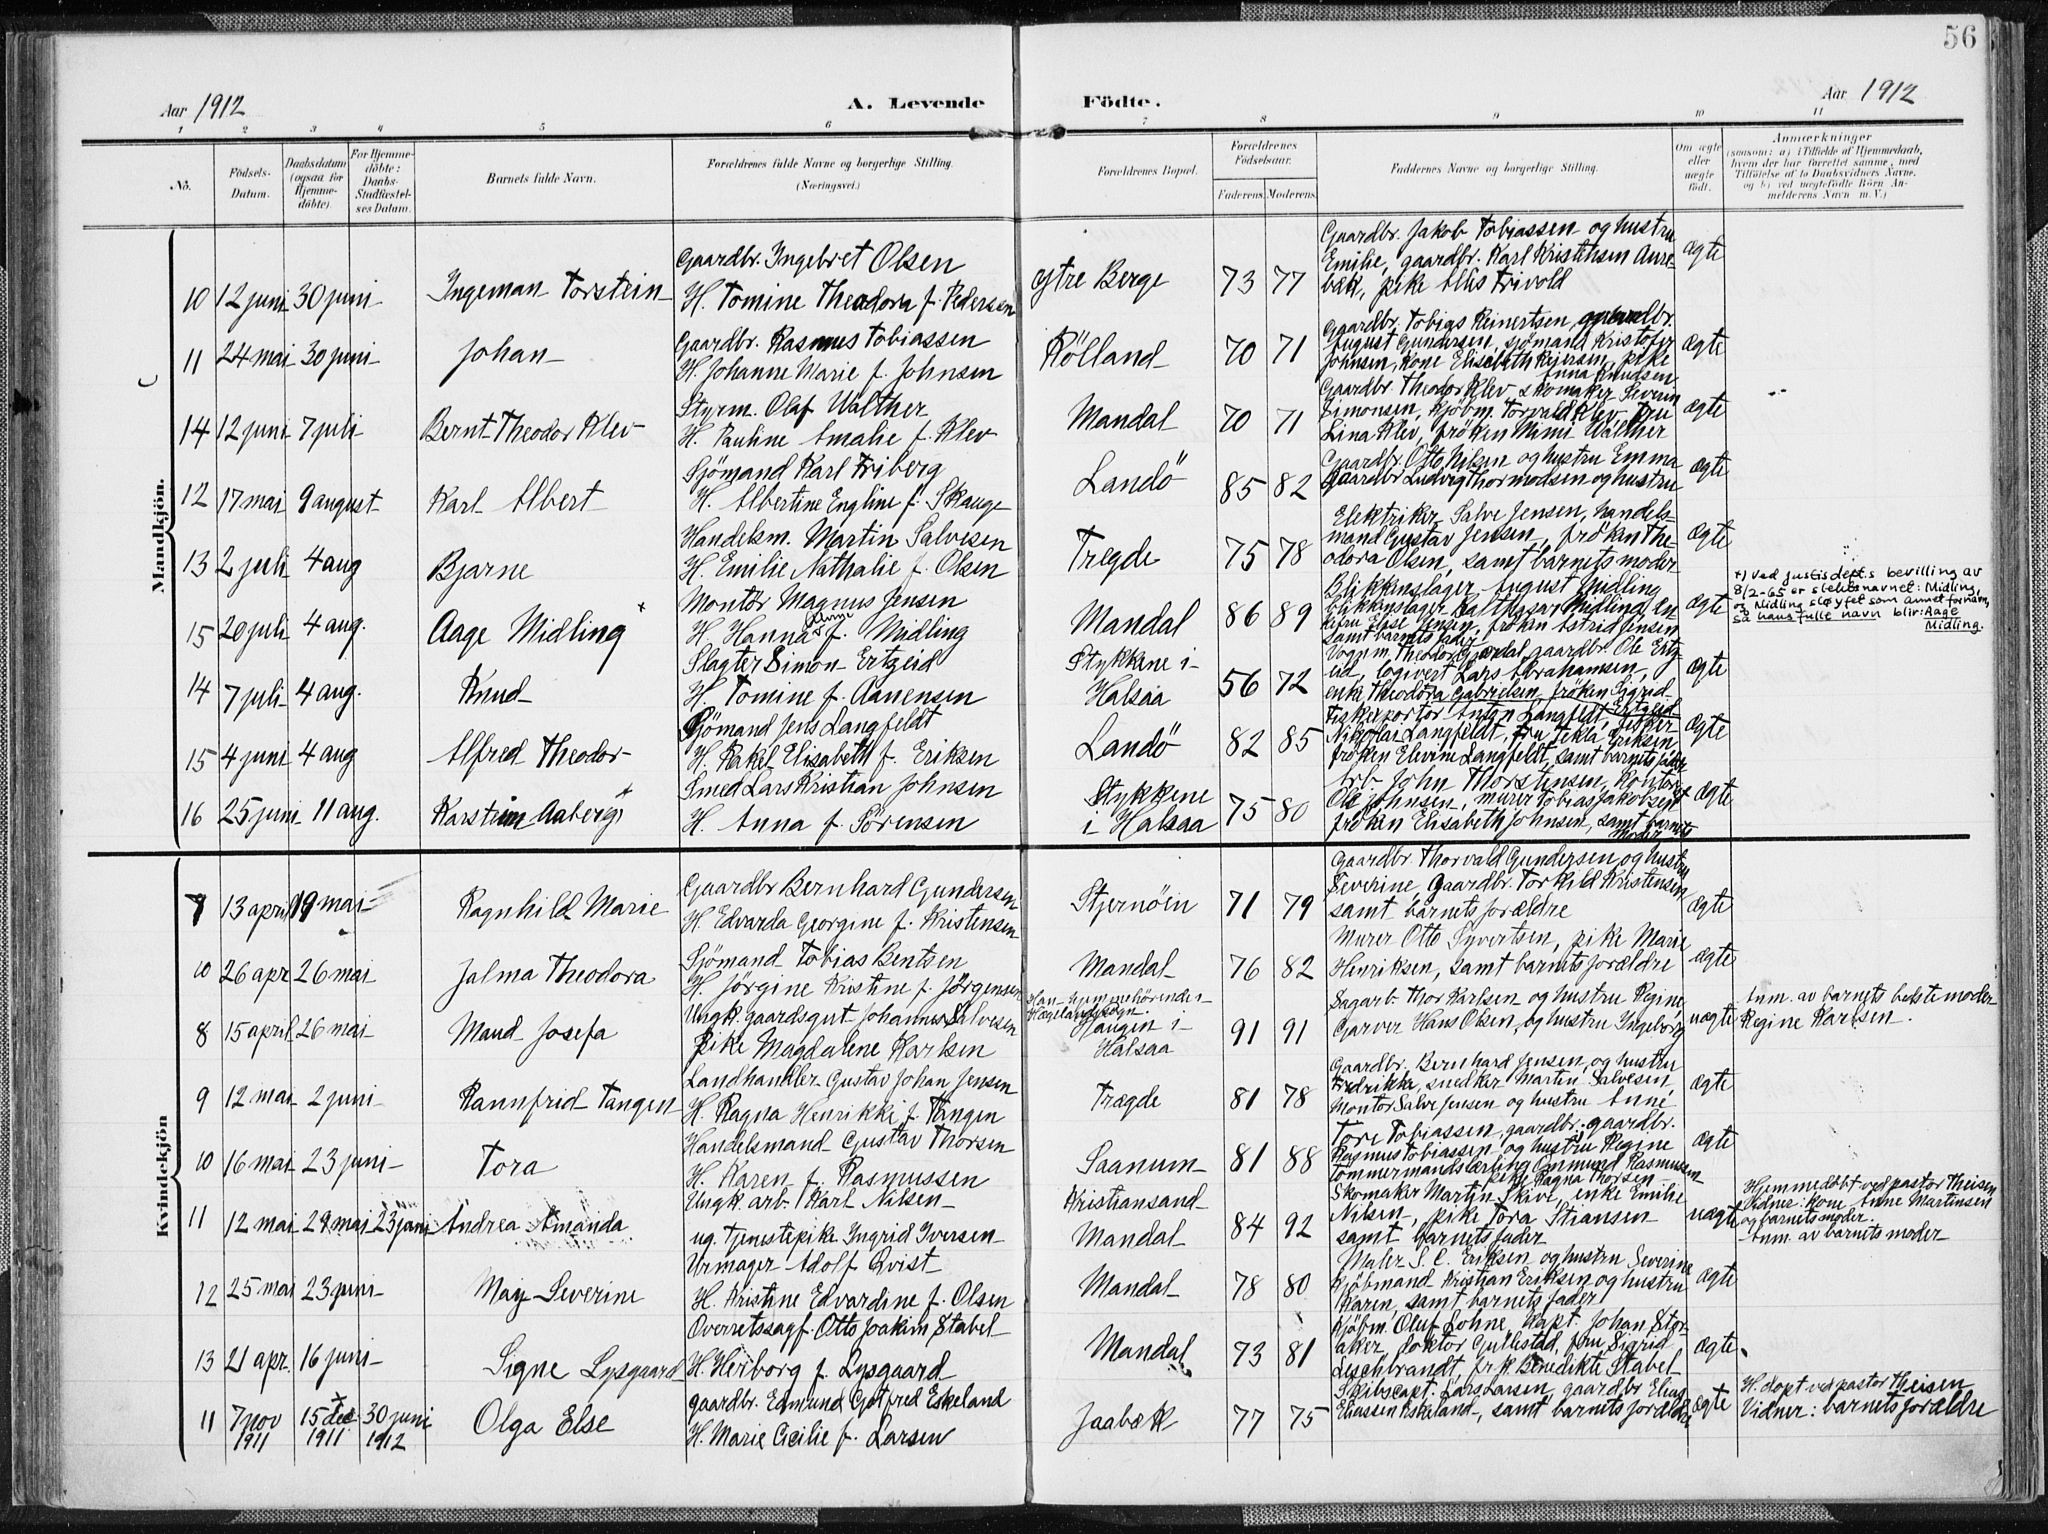 56
Aar 1912
A. Levende Födte.
Aar 1912
1 2 3 4 5 6 7 8 9 10 11
No.
Födsels-Datum.
Daabsdatum (ogsaa for Hjemme-döbte).
For Hjemme-döbte: Daabs-Stadfæstel-ses Datum.
Barnets fulde Navn.
Forældrenes fulde Navne og borgerlige Stilling. (Næringsvei.)
Forældrenes Bopæl.
Forældrenes Födselsaar.
Faderens. Moderens.
Faddernes Navne og borgerlige Stilling.
Om ægte eller uægte födt.
Anmærkninger
(saasom: a) i Tilfælde af Hjemmedaab, hvem der har forrettet samme, med Tilföielse af to Daabsvidners Navne, og b) ved uægtefödte Börn An-melderens Navn m. V.)
Mandkjön.
10 12 juni 30 juni Ingeman Torstein
Gaardbr. Ingebret Olsen
H. Tomine Theodora f. Pedersen
Ytre Berge 73 77
Gaardbr. Jakob Tobiassen og hustru
Emilie, gaardbr. Karl Kristensen Aure-
bæk, pike Alis Trivold
ægte
11 24 mai 30 juni Johan
Gaardbr. Rasmus Tobiassen
H. Johanne Marie f. Johnsen
Rölland 70 71
Gaardbr. Tobias Reinertsen, gaardbr.
August Gundersen, sjömand Kristofer
Johnsen, Kone Elisabeth Reiersen, pike
Anna Knudsen
ægte
14 12 juni 7 juli Bernt Theodor Klev
Styrm. Olaf Walther
H. Pauline Amalie f. Klev
Mandal 70 71
Gaardbr. Theodor Klev, skomaker Severin
Simonsen, kjöbm. Torvald Klev, Fru
Lina Klev, fröken Mimi Walther
ægte
12 17 mai 9 august Karl Albert
Sjömand Karl Friberg
H. Albertine Engline f. Skauge
Landö 85 82
Gaardbr. Otto Nilsen og hustru Emma
Gaardbr Ludvig Thormodsen og hustru
ægte
13 2 juli 4 aug Bjarne
Handelsm. Martin Salvesen
H. Emilie Nathalie f. Olsen
Tregde 75 78
Elektriker Salve Jensen, handels-
mand Gustav Jensen, fröken The-
odora Olsen, samt barnets moder
ægte
15 20 juli 4 aug. Aage Midling x
Montör Magnus Jensen
H. Hanna f. Midling
Mandal 86 89
Blikkenslager August Midling
blikkenslager Balthasar Midling, en-
kefru Else Jensen, fröken Astrid Jensen
samt barnets fader
ægte
+) Ved Justisdept.s bevilling av
8/2-65 er slektsnavnet: Midling,
og Midling sløyfet som annet fornavn,
så hans fulle navn blir: Aage
Midling.
14 7 juli 4 aug. Knud
Slagter Simon Ertzeid
H. Tomine f. Aanensen
Stykkene i
Halsaa 56 72
Vognm. Theodor Gjærdal, gaardbr. Ole Ertz-
eid, Logivert Lars Abrahamsen,
enke Theodora Gabrielsen, fröken Sigrid
Ertzeid
ægte
15 4 juni 4 aug Alfred Theodor
Sjömand Jens Langfeldt
H. Rakel Elisabeth f. Eriksen
Landö 82 85
Anton Langfeldt, fisker
Nikolai Langfeldt, fru Tekla Eriksen
fröken Elvine Langfeldt, samt barnets fader
ægte
16 25 juni 11 aug. Karsten Aaberg x
Smed Lars Kristian Johnsen
H. Anna f. Sörensen
Stykkene
i Halsaa 75 80
Arb. John Thorstensen,
Ole Johnsen, murer Tobias Jakobsen
fröken Elisabeth Johnsen, samt barnets
moder
ægte
Kvindekjön
7 13 april 19 mai Ragnhild Marie
Gaardbr Bernhard Gundersen
H. Edvarda Georgine f. Kristensen
Stjernöen 71 79
Gaardbr. Thorvald Gundersen og hustru
Severine, Gaardbr. Torkild Kristensen,
samt barnets forældre
ægte
10 26 apr 26 mai Jalma Theodora
Sjömand Tobias Bentsen
H. Jörgine Kristine f. Jörgensen
Mandal 76 82
Murer Otto Syvertsen, pike Marie
Henriksen, samt barnets forældre
ægte
8 15 april 26 mai Maud Josefa
Ungk. gaardsgut Johannes Salvesen
Pike Magdalene Karlsen
Han hjemmehörende i
Hægelands sogn.
Haugen i
Halsaa 91 91
Sagarb. Thor Karlsen og hustru Regine,
Garver Hans Olsen og hustru Ingeborg
uægte
Anm. av barnets bestemoder
Regine Karlsen.
9 12 mai 2 juni Rannfrid Tangen
Landhandler Gustav Johan Jensen
H. Ragna Henrikke f. Tangen
Trægde 81 78
Gaardbr. Bernhard Jensen og hustru
Fredrikke, snedker Martin Salvesen,
Montör Salve Jensen og hustru Anne
ægte
10 16 mai 23 juni Tora
Handelsmand Gustav Thorsen
H. Karen f. Rasmussen
Saanum 81 88
Tore Tobiassen, gaardbr. gaardbr.
Rasmus Tobiassen og hustru Regine
Tommermandslærling Ommund Rasmussen
pike Ragna Thorsen
ægte
11 12 mai 29 mai 23 juni Andrea Amanda
Ungk. arb. Karl Nilsen
ug. Tjenestepike Ingrid Iversen
Kristiansand
Mandal 84 92
Skomaker Martin Skive, enke Emilie
Nilsen, pike Tora Stiansen
samt barnets fader
uægte
Hjemmedöbt ved pastor Theisen
Vidner: Kone Anne Martinsen
og barnets moder.
Anm. av barnets moder
12 25 mai 23 juni May Severine
Urmager Adolf Qvist
H. Kristine Edvardine f. Olsen
Mandal 78 80
Maler S. C. Eriksen og hustru Severine
Kjöbmand Kristian Eriksen og hustru
Karen, samt barnets fader
ægte
13 21 apr. 16 juni Signe Lysgaard
Overretssagf. Otto Joakim Stabel
H. Herborg f. Lysgaard
Mandal 73 81
Kjöbm. Oluf Lohne, Kapt. Johan Stor-
aker, Doktor Gullestad, fru Sigrid
Leschbrandt, frk. Benedikte Stabel
ægte
11 7 nov 1911 15 dec 1911 30 juni 1912 Olga Else
Gaardbr. Edmund Gotfred Eskeland
H. Marie Cicilie f. Larsen
Jaabæk 77 75
Skibscapt. Lars Larsen, gaardbr Elias
Eliassen Eskeland, samt barnets forældre
ægte
H. döpt ved pastor Theisen
Vidner: barnets forældre